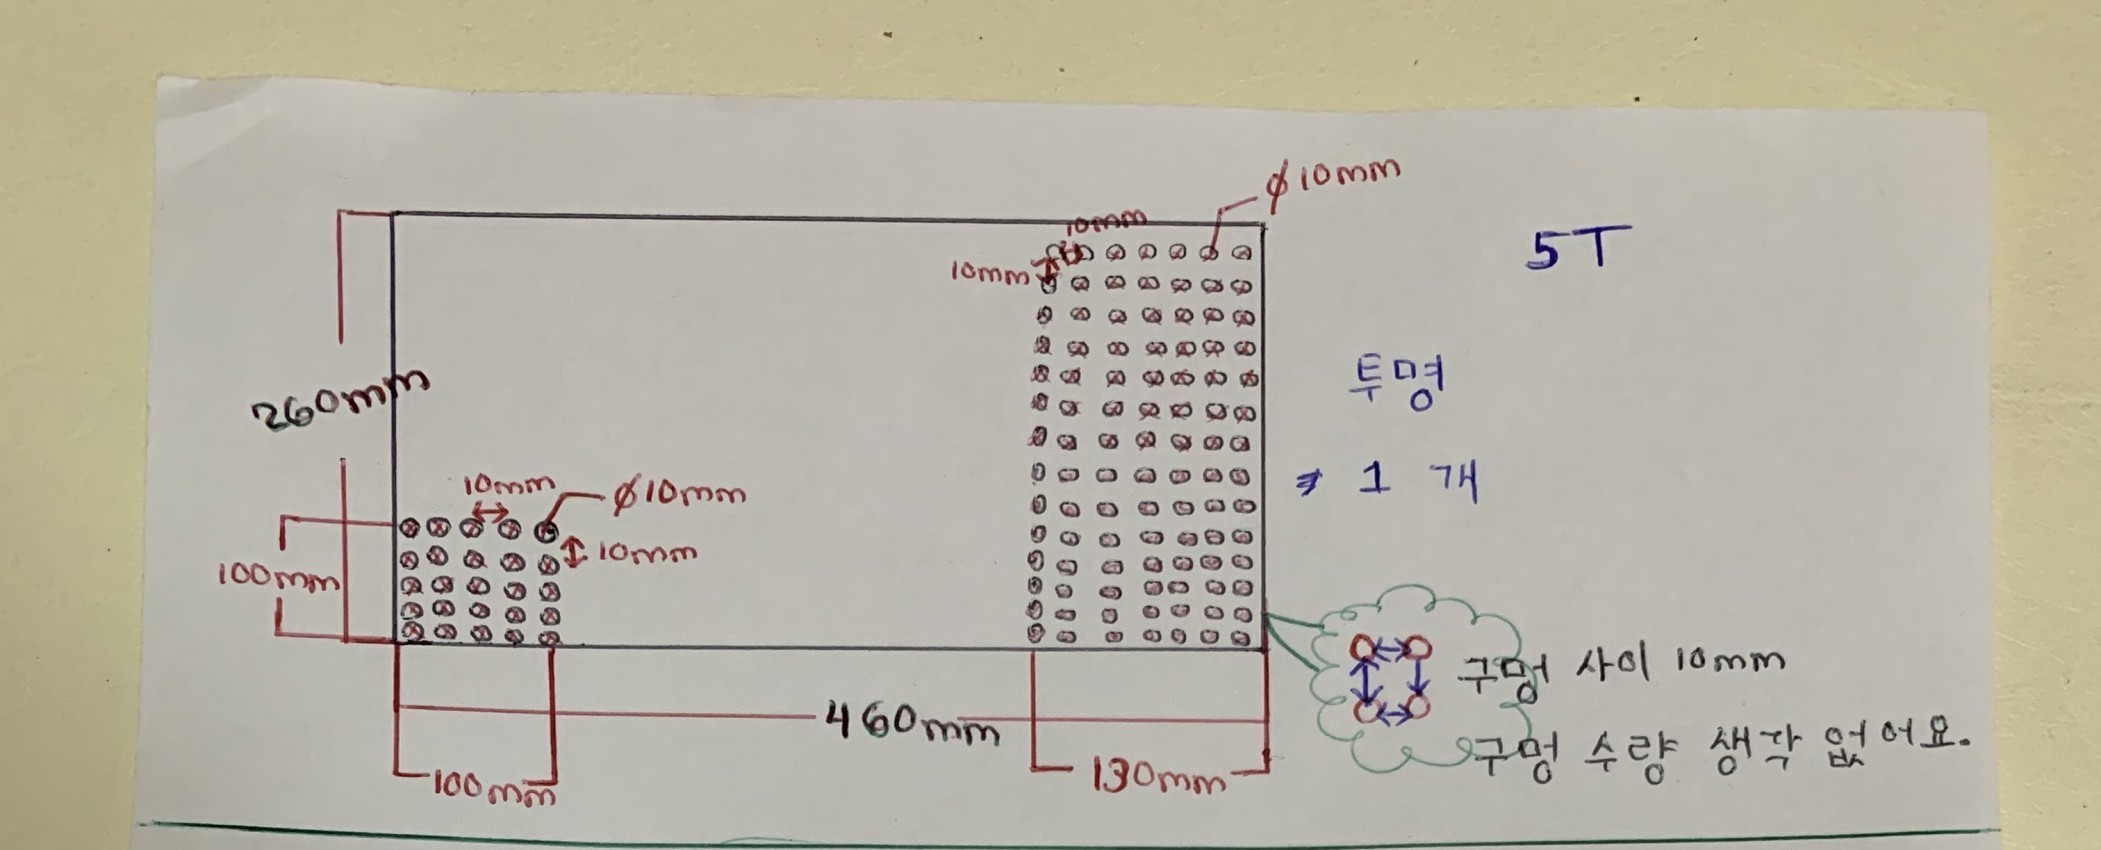 ϕ10mm
10mm
10mm
5T
260mm
투명
1 개
10mm
ϕ10mm
10mm
100mm
구멍 사이 10mm
구멍 수량 생각 없어요.
460mm
100mm
130mm